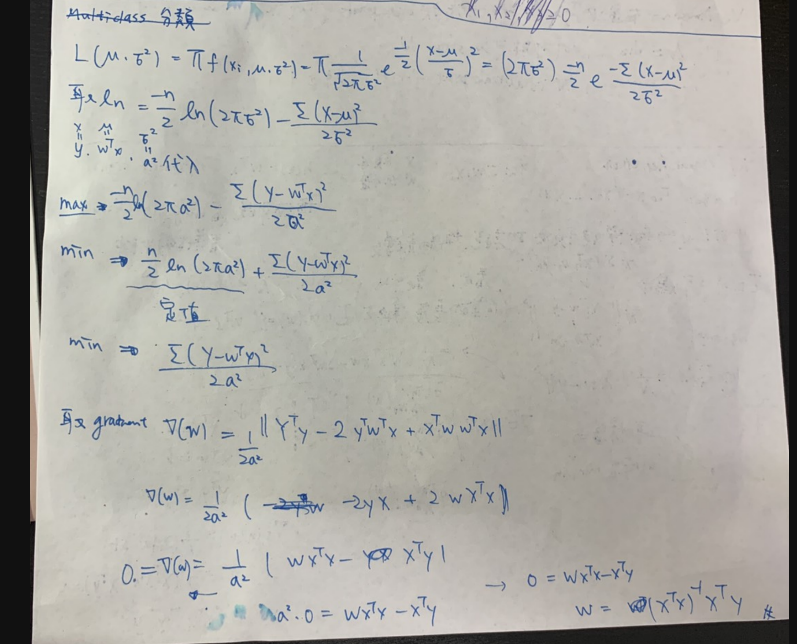 Multiclass 分類
x₁, x₂, = 0
L(μ, σ²) = π f(xᵢ, μ, σ²) = π 1/√(2πσ²) e^(-1/2 ((x-μ)/σ)²) = (2πσ²)^(-n/2) e^(-Σ(x-μ)²/2σ²)
取 ln = -n/2 ln(2πσ²) - Σ(x-μ)²/2σ²
x μ σ²
y, wᵀx, a² 代入
max ⇒ -n/2 ln(2πa²) - Σ(y-wᵀx)²/2a²
min ⇒ n/2 ln(2πa²) + Σ(y-wᵀx)²/2a²
定值
min ⇒ Σ(y-wᵀx)²/2a²
取 gradient ∇(w) = 1/2a² ||yᵀy - 2yᵀwᵀx + xᵀwwᵀx||
∇(w) = 1/2a² ( -2yx + 2wxᵀx )
0 = ∇(w) = 1/a² | wxᵀx - xᵀy |
a²·0 = wxᵀx - xᵀy
→ 0 = wxᵀx - xᵀy
w = (xᵀx)⁻¹xᵀy #